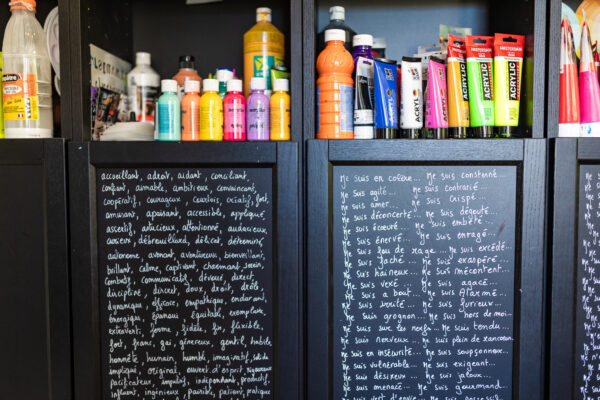 AMSTERDAM
ACRYLIC
AMSTERDAM
ACRYLIC
AMSTERDAM
ACRYLIC
accueillant, adroit, aidant, conciliant,
confiant, aimable, ambitieux, convaincant,
coopératif, courageux, courtois, créatif, fort,
amusant, apaisant, accessible, appliqué,
assertif, astucieux, attentionné, audacieux,
débrouillard, délicat, déterminé
autonome, avenant, aventureux, bienveillant,
brillant, calme, captivant, charmant, serein,
combatif, communicatif, dévoué, direct,
discipliné, discret, doux, droit, drôle,
dynamique, efficace, empathique, endurant,
énergique, épanoui, équitable, exemplaire,
extraverti, ferme, fidèle, fin, flexible,
franc, gai, généreux, gentil, habile
honnête, humain, humble, imaginatif, solide
impliqué, original, ouvert d'esprit
pacificateur, impulsif, indépendant, productif
ingénieux, paisible, patient, pratique
Je suis en colère... Je suis consterné...
Je suis agité... Je suis contrarié...
Je suis amer... Je suis crispé...
Je suis déconcerté... Je suis dégoûté...
Je suis écoeuré... Je suis embêté...
Je suis énervé... Je suis enragé...
Je suis fou de rage... Je suis excédé...
Je suis fâché... Je suis exaspéré...
Je suis haineux... Je suis mécontent...
Je suis vexé... Je suis agacé...
Je suis à bout... Je suis alarmé...
Je suis irrité... Je suis furieux...
Je suis grognon... Je suis hors de moi...
Je suis sur les nerfs... Je suis tendu...
Je suis nerveux... Je suis plein de rancoeur
Je suis en insécurité... Je suis soupçonneux...
Je suis vulnérable... Je suis exigeant...
Je suis désireux... Je suis jaloux...
Je suis menacé... Je suis gourmand...